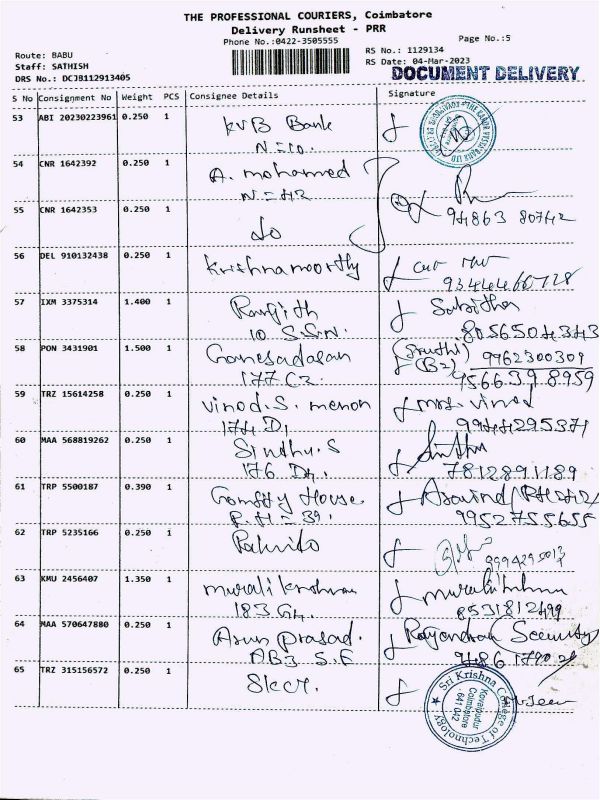 THE PROFESSIONAL COURIERS, Coimbatore
Delivery Runsheet - PRR
Phone No.:0422-3505555
Page No.:5
Route: BABU
Staff: SATHISH
DRS No.: DCJB112913405
RS No.: 1129134
RS Date: 04-Mar-2023
DOCUMENT DELIVERY
S No Consignment No Weight PCS Consignee Details Signature
53 ABI 20230223961 0.250 1 KVB Bank
54 CNR 1642392 0.250 1 A. mohamed
N=42
94863 80742
55 CNR 1642353 0.250 1 do
56 DEL 910132438 0.250 1 Krishnamoorthy
57 IXM 3375314 1.400 1 Ranjith Sabitha
10 S.S.N. 8056504343
58 PON 3431901 1.500 1 Ganesadasan (Sruthi) 9962300309
177 C2. (B2) 9566398959
59 TRZ 15614258 0.250 1 vinod.S. menon mrs. vinod
174 D1 9944295371
60 MAA 568819262 0.250 1 Sindhu.S
176 D4. 7812891189
61 TRP 5500187 0.390 1 House
P.H=39. 9952755655
62 TRP 5235166 0.250 1
63 KMU 2456407 1.350 1 muralikrishnan
183 G4 8531812499
64 MAA 570647880 0.250 1 Arun prasad. Rajendran (Security)
AB3 S.F
65 TRZ 315156572 0.250 1 Skct.
Sri Krishna College of Technology
Kovaipudur
Coimbatore
641 042